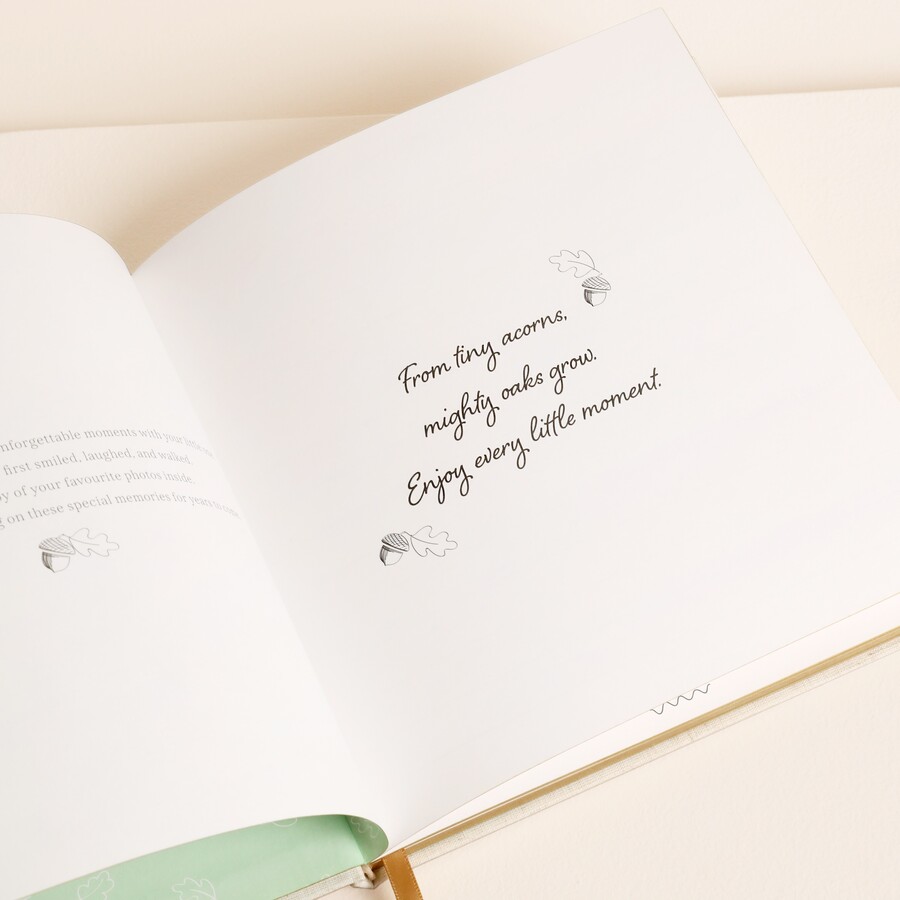 nforgettable moments with your little
first smiled, laughed, and walked
of your favourite photos inside.
on these special memories for years to
From tiny acorns,
mighty oaks grow.
Enjoy every little moment.